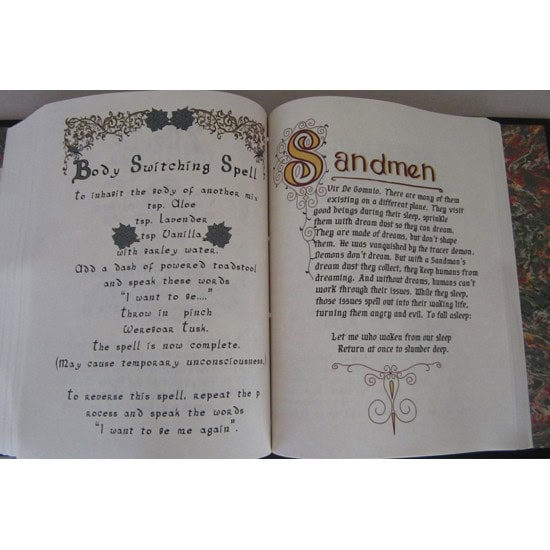 Body Switching Spell
To inhabit the body of another mix
tsp. Aloe
tsp. Lavender
tsp Vanilla
with barley water.
Add a dash of powered toadstool
and speak these words
"I want to be...."
Throw in pinch
Wereboar Tusk.
The spell is now complete.
(May cause temporary unconsciousness.
to reverse this spell, repeat the p
rocess and speak the words
"I want to be me again".
Sandmen
Vir De Somnio. There are many of them
existing on a different plane. They visit
good beings during their sleep, sprinkle
them with dream dust so they can dream.
They are made of dreams, but don't shape
them. He was vanquished by the tracer demon.
Demons don't dream. But with a Sandman's
dream dust they collect, they keep humans from
dreaming. And without dreams, humans can't
work through their issues. While they sleep,
those issues spell out into their waking life,
turning them angry and evil. To fall asleep:
Let me who waken from our sleep
Return at once to slumber deep.